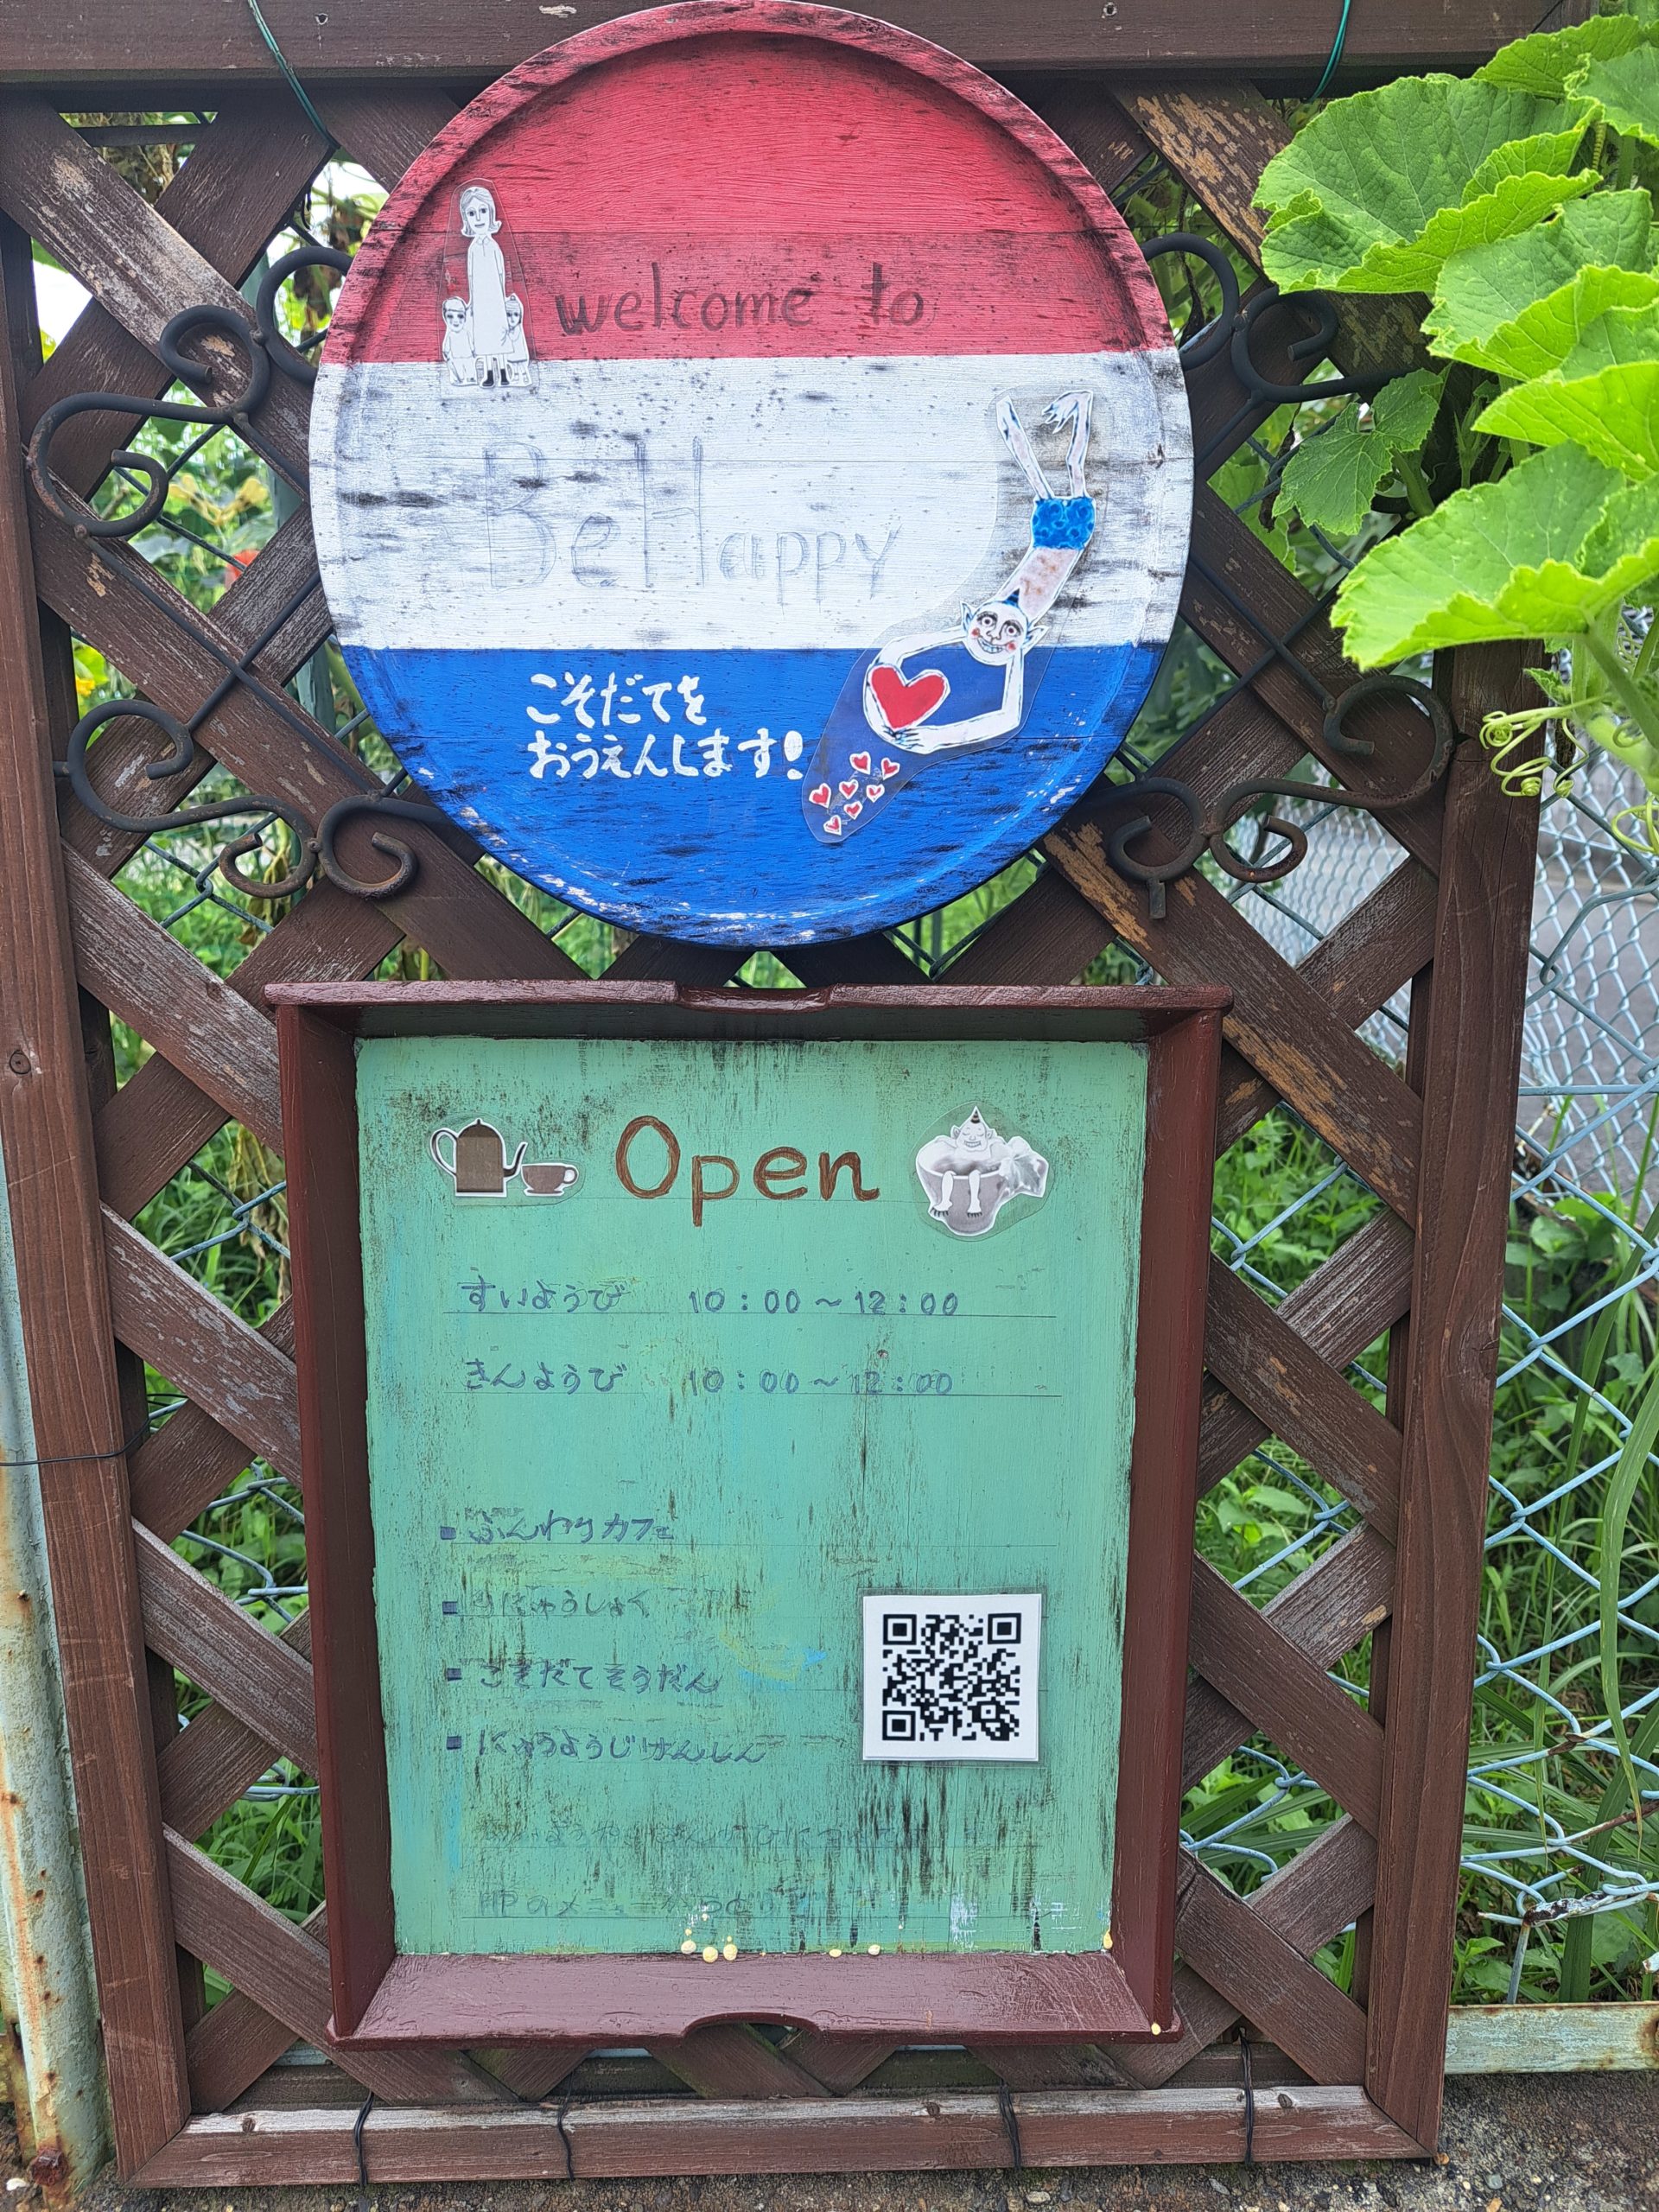 welcome to
BeHappy
こそだてを
おうえんします!
Open
すいようび 10:00～12:00
きんようび 10:00～12:00
▪ふんわりカフェ
▪りにゅうしょく
▪こそだてそうだん
▪にゅうようじけんしん
HPのメニューから